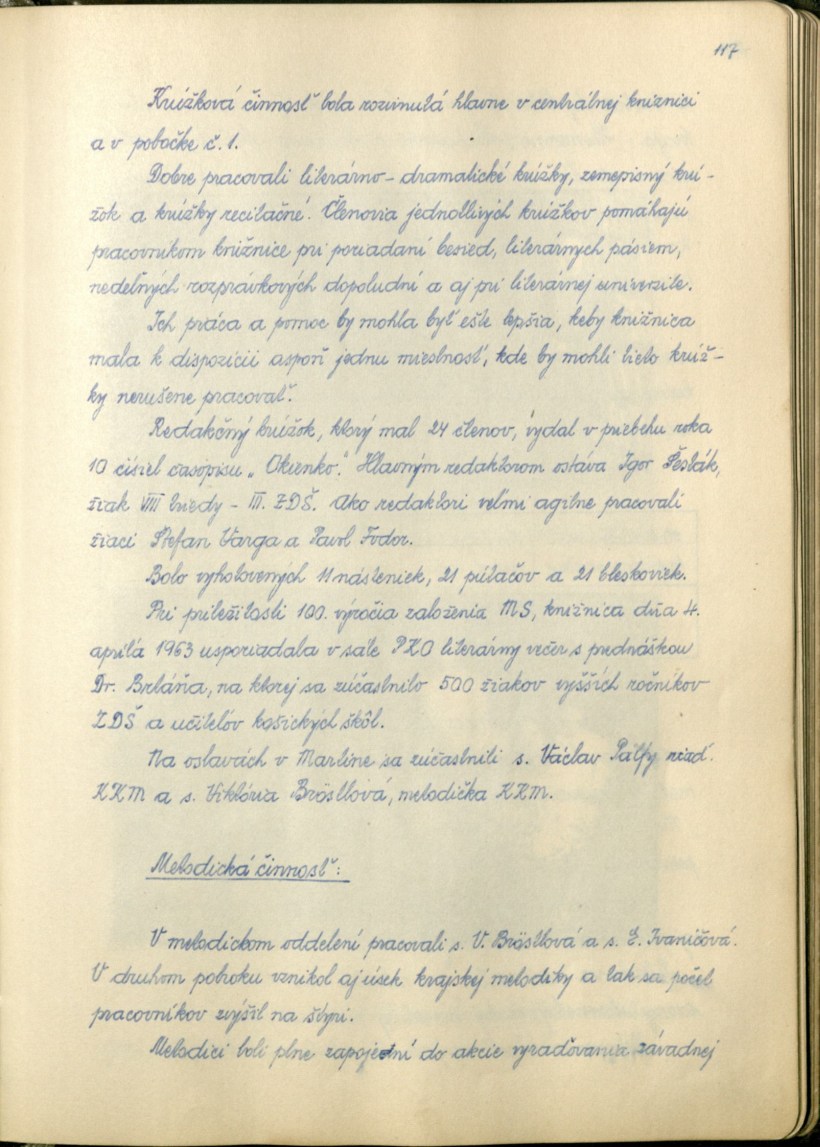 117
Krúžková činnosť bola rozvinutá hlavne v centrálnej knižnici
a v pobočke č. 1.
Dobre pracovali literárno - dramatické krúžky, zemepisný krú -
žok a krúžky recitačné. Členovia jednotlivých krúžkov pomáhajú
pracovníkom knižnice pri poriadaní besied, literárnych pásiem,
nedeľných rozprávkových dopoludní a aj pri literárnej univerzite.
Ich práca a pomoc by mohla byť ešte lepšia, keby knižnica
mala k dispozícii aspoň jednu miestnosť, kde by mohli tieto krúž-
ky nerušene pracovať.
Redakčný krúžok, ktorý mal 24 členov, vydal v priebehu roka
10 čísiel časopisu „Okienko". Hlavným redaktorom ostáva Igor Šesták,
žiak VIII triedy - III. ZDŠ. Ako redaktori veľmi agilne pracovali
žiaci Štefan Varga a Pavol Fodor.
Bolo vyhotovených 11 násteniek, 21 pútačov a 21 bleskoviek.
Pri príležitosti 100. výročia založenia MS, knižnica dňa 4.
apríla 1963 usporiadala v sále PKO literárny večer s prednáškou
Dr. Brtáňa, na ktorej sa zúčastnilo 500 žiakov vyšších ročníkov
ZDŠ a učiteľov košických škôl.
Na oslavách v Martine sa zúčastnili s. Václav Pálfy riad.
KKM a s. Viktória Bröstlová, metodička KKM.
Metodická činnosť:
V metodickom oddelení pracovali s. V. Bröstlová a s. E. Ivaničová.
V druhom polroku vznikol aj úsek krajskej metodiky a tak sa počet
pracovníkov zvýšil na štyri.
Metodici boli plne zapojení do akcie vyraďovania závadnej